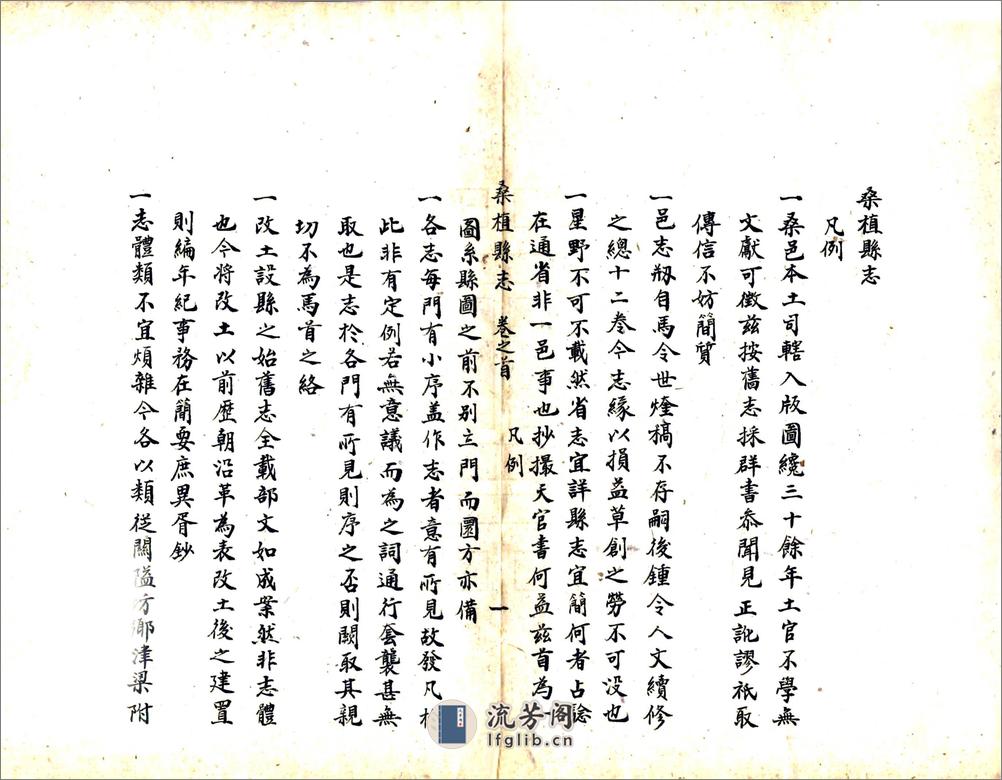 桑植縣志
凡例
一桑邑本土司轄入版圖纔三十餘年土官不學無
文獻可徵茲按舊志採群書叅聞見正訛謬祇取
傳信不妨簡質
一邑志剏自馬令世燈稿不存嗣後鍾令人文續修
之總十二卷今志緣以損益草創之勞不可没也
一星野不可不載然省志宜詳縣志宜簡何者占騐
在通省非一邑事也抄撮天官書何益茲首為
桑植縣志 卷之首 凡例 一
圖系縣圖之前不别立門而圜方亦備
一各志每門有小序盖作志者意有所見故發凡
此非有定例若無意議而為之詞通行套襲甚無
取也是志於各門有所見則序之否則闕取其親
切不為馬首之絡
一改土設縣之始舊志全載部文如成案然非志體
也今將改土以前歷朝沿革為表改土後之建置
則編年紀事務在簡要庶異胥鈔
一志體類不宜煩雜今各以類從關隘坊鄉津梁附
流芳阁
lfglib.cn